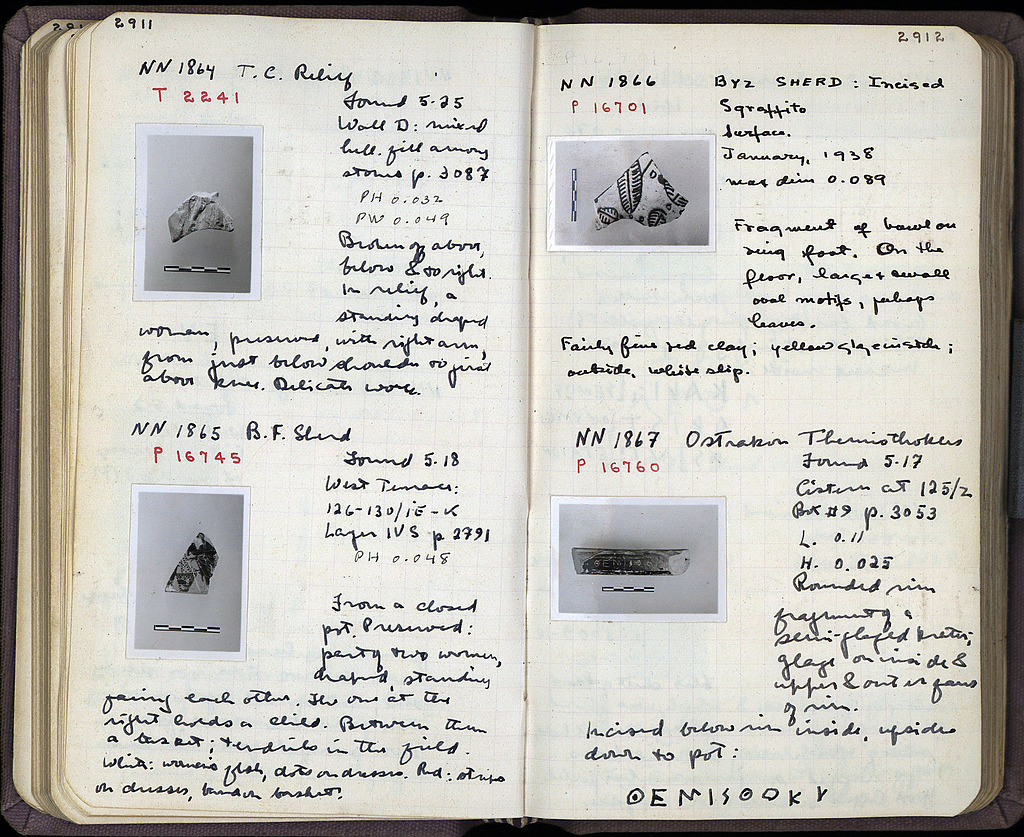 2911
NN 1864 T.C. Relief
T 2241
Found 5-25
Wall D: mixed
hell. fill among
stones p. 3087
PH 0.032
PW 0.049
Broken off above,
below & to right.
In relief, a
standing draped
woman, preserved, with right arm,
from just below shoulder to just
above knee. Delicate work.
NN 1865 B.F. Sherd
P 16745
Found 5.18
West Terrace:
126-130/ΙΕ-Κ
Layer IVS p 2791
PH 0.048
From a closed
pot. Preserved:
part of two women,
draped, standing
facing each other. The one at the
right holds a child. Between them
a basket; tendrils in the field.
White: women's flesh, dots on dresses. Red: stripes
on dresses, band on basket.
2912
NN 1866 BYZ SHERD: Incised
P 16701
Sgraffito
Surface.
January, 1938
max dim 0.089
Fragment of bowl on
ring foot. On the
floor, large & small
oval motifs, perhaps
leaves.
Fairly fine red clay; yellow glaze inside;
outside, white slip.
NN 1867 Ostrakon Themisthokles
P 16760
Found 5.17
Cistern at 125/
Box #9 p. 3053
L. 0.11
H. 0.025
Rounded rim
fragment of a
semi-glazed krater;
glaze on inside &
upper & outer faces
of rim.
Incised below rim inside, upside
down to pot:
ΘEMISΘOKV